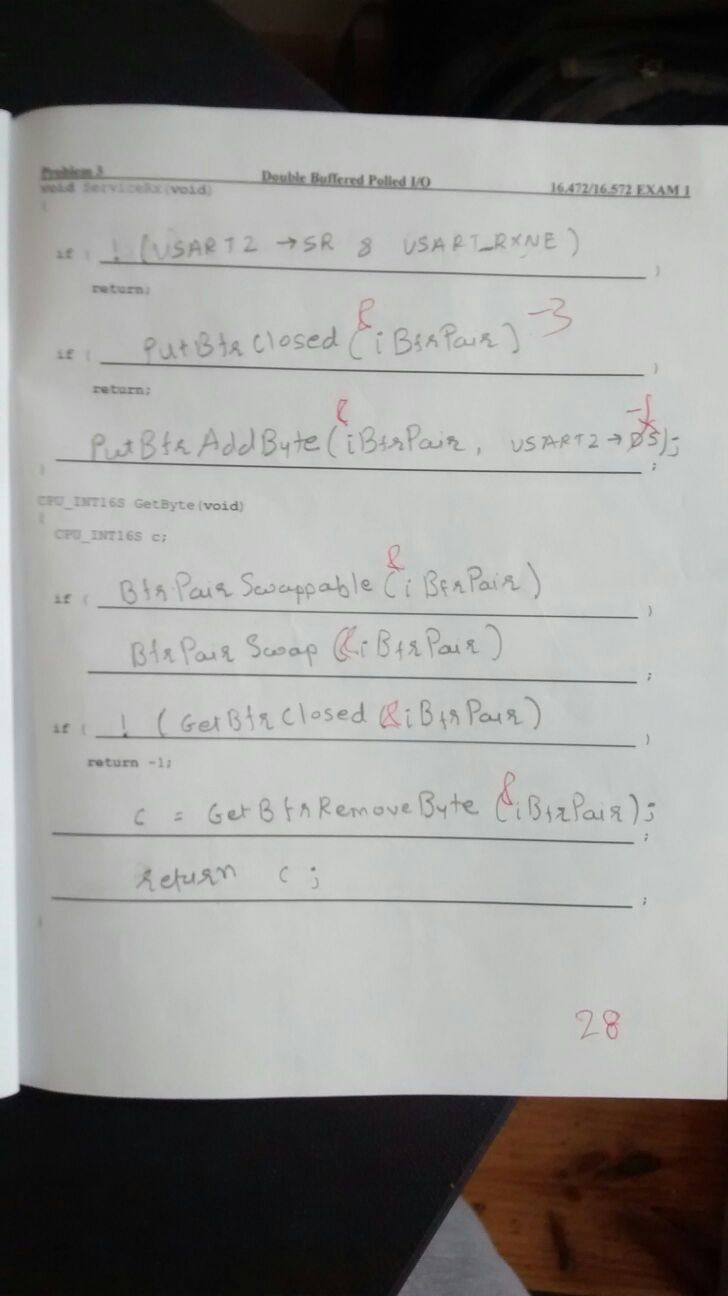 Problem 3 Double Buffered Polled I/O 16.472/16.572 EXAM 1
void ServiceRx(void)
{
if ( ! (USART2 → SR & USART_RXNE) )
return;
if ( PutBfrClosed (& iBfrPair) -3 )
return;
-1
PutBfrAddByte (& iBfrPair, USART2 → DS); ;
}
CPU_INT16S GetByte(void)
{
CPU_INT16S c;
if ( BfrPairSwappable (& iBfrPair) )
BfrPairSwap (& iBfrPair) ;
if ( ! (GetBfrClosed (& iBfrPair) )
return -1;
c = GetBfrRemoveByte (& iBfrPair); ;
return c; ;
}
28